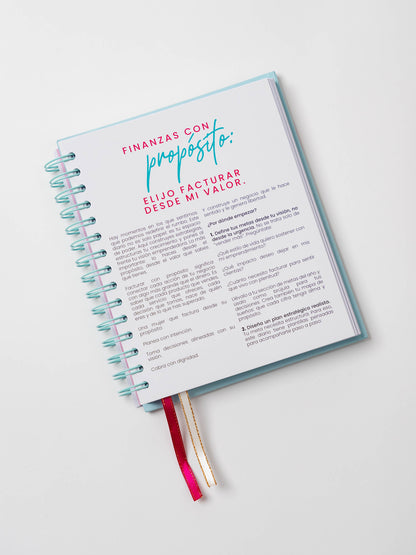 FINANZAS CON
propósito:
ELIJO FACTURAR
DESDE MI VALOR.
Hay momentos en los que sentimos
que podemos redefinir el rumbo. Este
diario no es solo papel: es tu espacio
de poder. Aquí construyes estrategia,
facturas, tu crecimiento y pones al
frente tu visión emprendedora. Lo más
importante: lo haces desde el
propósito, desde el valor que sabes
que ofreces.
Facturar con propósito significa
conectar cada acción de tu negocio
con algo más grande que el dinero. Es
saber que cada producto que vendes,
cada servicio que ofreces, cada
decisión que tomas, nace de quién
eres y de lo que has superado.
Una mujer que factura desde su
propósito:
Planea con intención.
Toma decisiones alineadas con su
visión.
Cobra con dignidad.
Y construye un negocio que le hace
sentido y le genera libertad.
¿Por dónde empezar?
1. Define tus metas desde tu visión, no
desde la urgencia. No se trata solo de
"vender más". Pregúntate:
¿Qué estilo de vida quiero sostener con
mi emprendimiento?
¿Qué impacto deseo dejar en mis
clientas?
¿Cuánto necesito facturar para sentir
que vivo con plenitud?
Llévalo a tu sección de metas del año y
úsalo como brújula para tus
decisiones. Crea también tu mapa de
sueños: que cada cifra tenga alma y
dirección.
2. Diseña un plan estratégico realista.
Tu meta necesita estructura. Para eso,
este diario tiene plantillas pensadas
para acompañarte paso a paso